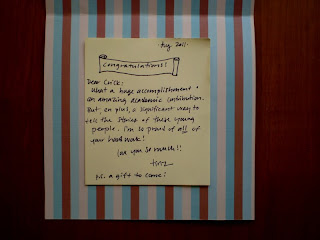 Aug 2011.
Congratulations!!
Dear Chick:
What a huge accomplishment +
an amazing academic contribution.
But, en plus, a significant way to
tell the stories of these young
people. I'm so proud of all of
your hard work!
Love you so much!!
P.S. a gift to come!